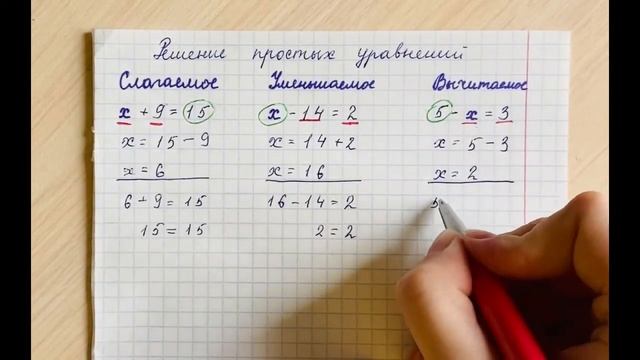 Решение простых уравнений
Слагаемое
x + 9 = 15
x = 15 - 9
x = 6
6 + 9 = 15
15 = 15
Уменьшаемое
x - 14 = 2
x = 14 + 2
x = 16
16 - 14 = 2
2 = 2
Вычитаемое
5 - x = 3
x = 5 - 3
x = 2
5